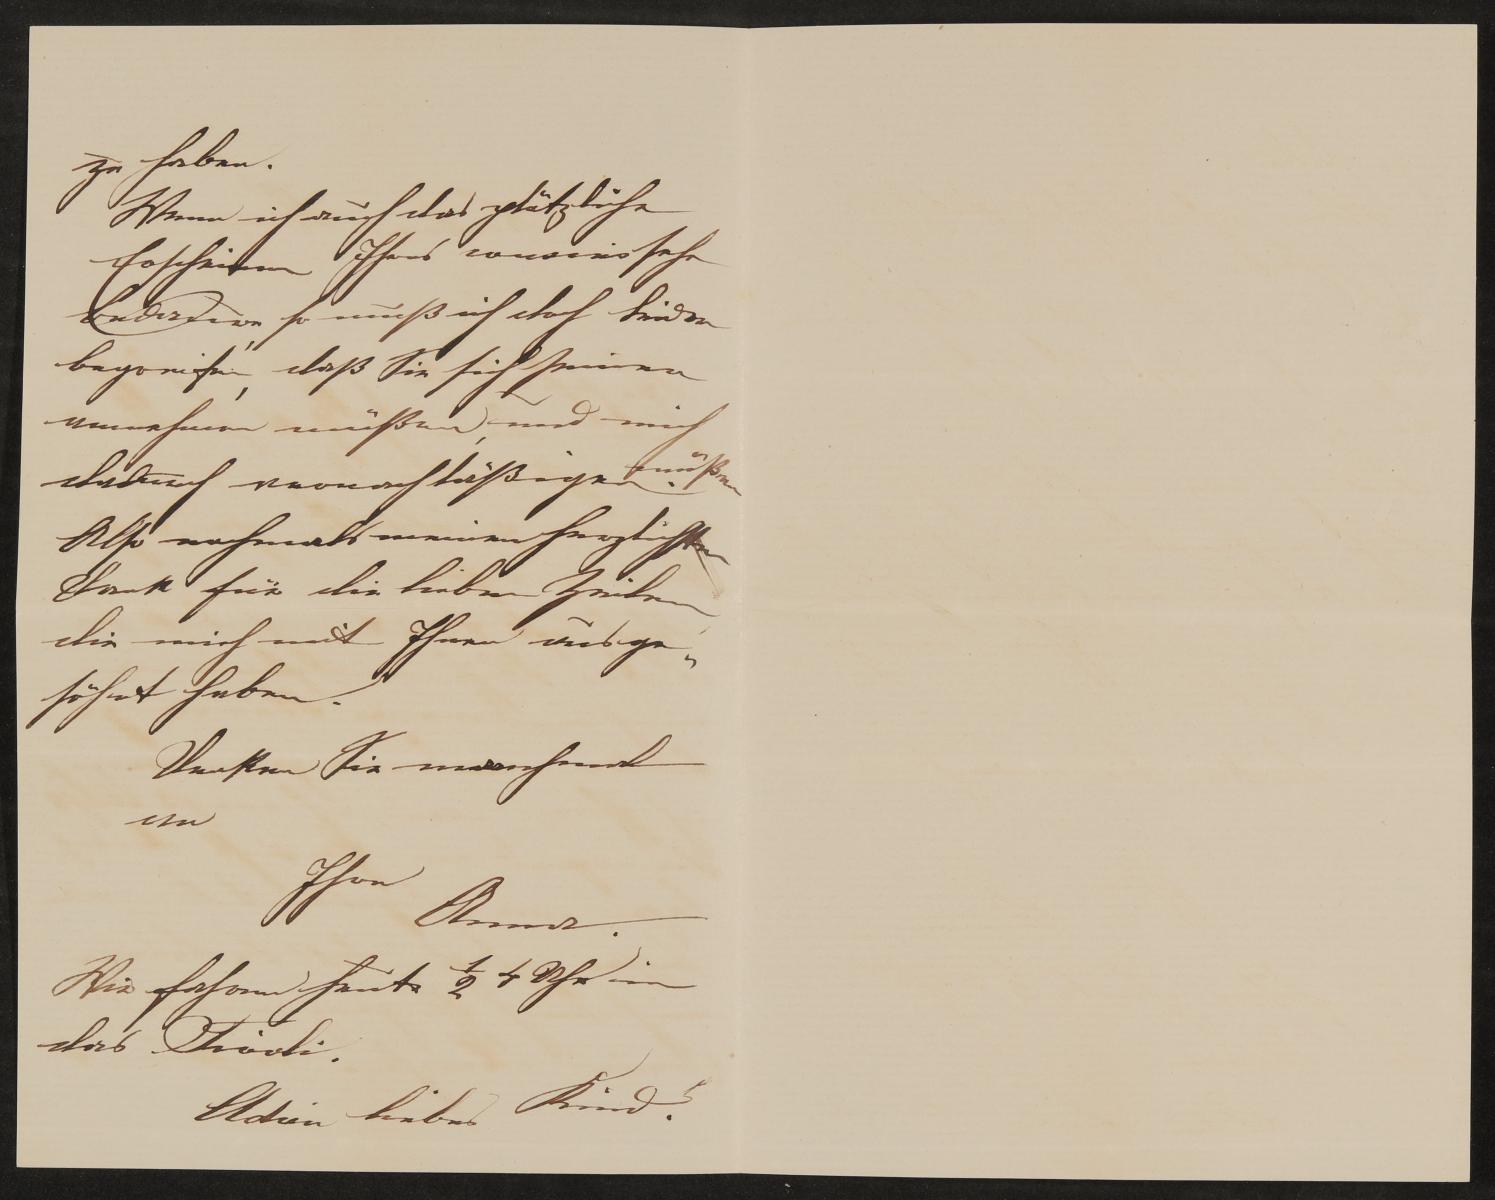 zu haben.
Wenn ich auch das plötzliche
Erscheinen Ihres cousins sehr
bedaure, so muß ich doch leider
begreifen, daß Sie sich seiner
annehmen müßen, und mich
dadurch vernachläßigen müßen.
Also nochmals meinen herzlichsten
Dank für die lieben Zeilen
die mich mit Ihnen ausge„
söhnt haben.
Denken Sie manchmal
an
Ihre
Anna.
Wir fahren heute ½ 4 Uhr in
das Tivoli.
Adieu liebes Kind!